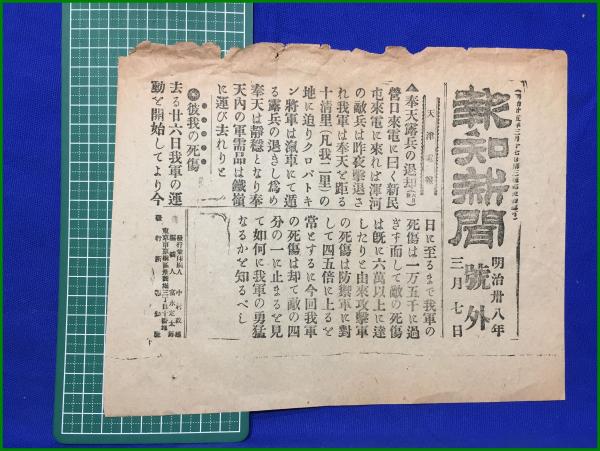 報知新聞
號外
明治卅八年
三月七日
天津電報
奉天露兵の退却
營口來電に曰く新民
屯來電に來れば渾河
の敵兵は昨夜擊退さ
れ我軍は奉天を距る
十淸里(凡我二里)の
地に迫りクロパトキ
ン將軍は汽車にて遁
る露兵の退きし爲め
奉天は靜穩となり奉
天內の軍需品は鐵嶺
に運び去れりと
彼我の死傷
去る廿六日我軍の運
動を開始してより今
日に至るまで我軍の
死傷は一万五千に過
ぎず而して敵の死傷
は旣に六萬以上に達
したりと由來攻擊軍
の死傷は防禦軍に對
して四五倍に上るを
常とするに今回我軍
の死傷は却て敵の四
分の一に止まるを見
て如何に我軍の勇猛
なるかを知るべし